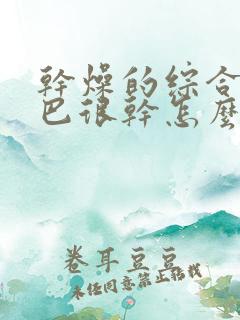 幹燥的綜合
巴很幹怎麼
卷耳豆豆
未任同意禁止轉載